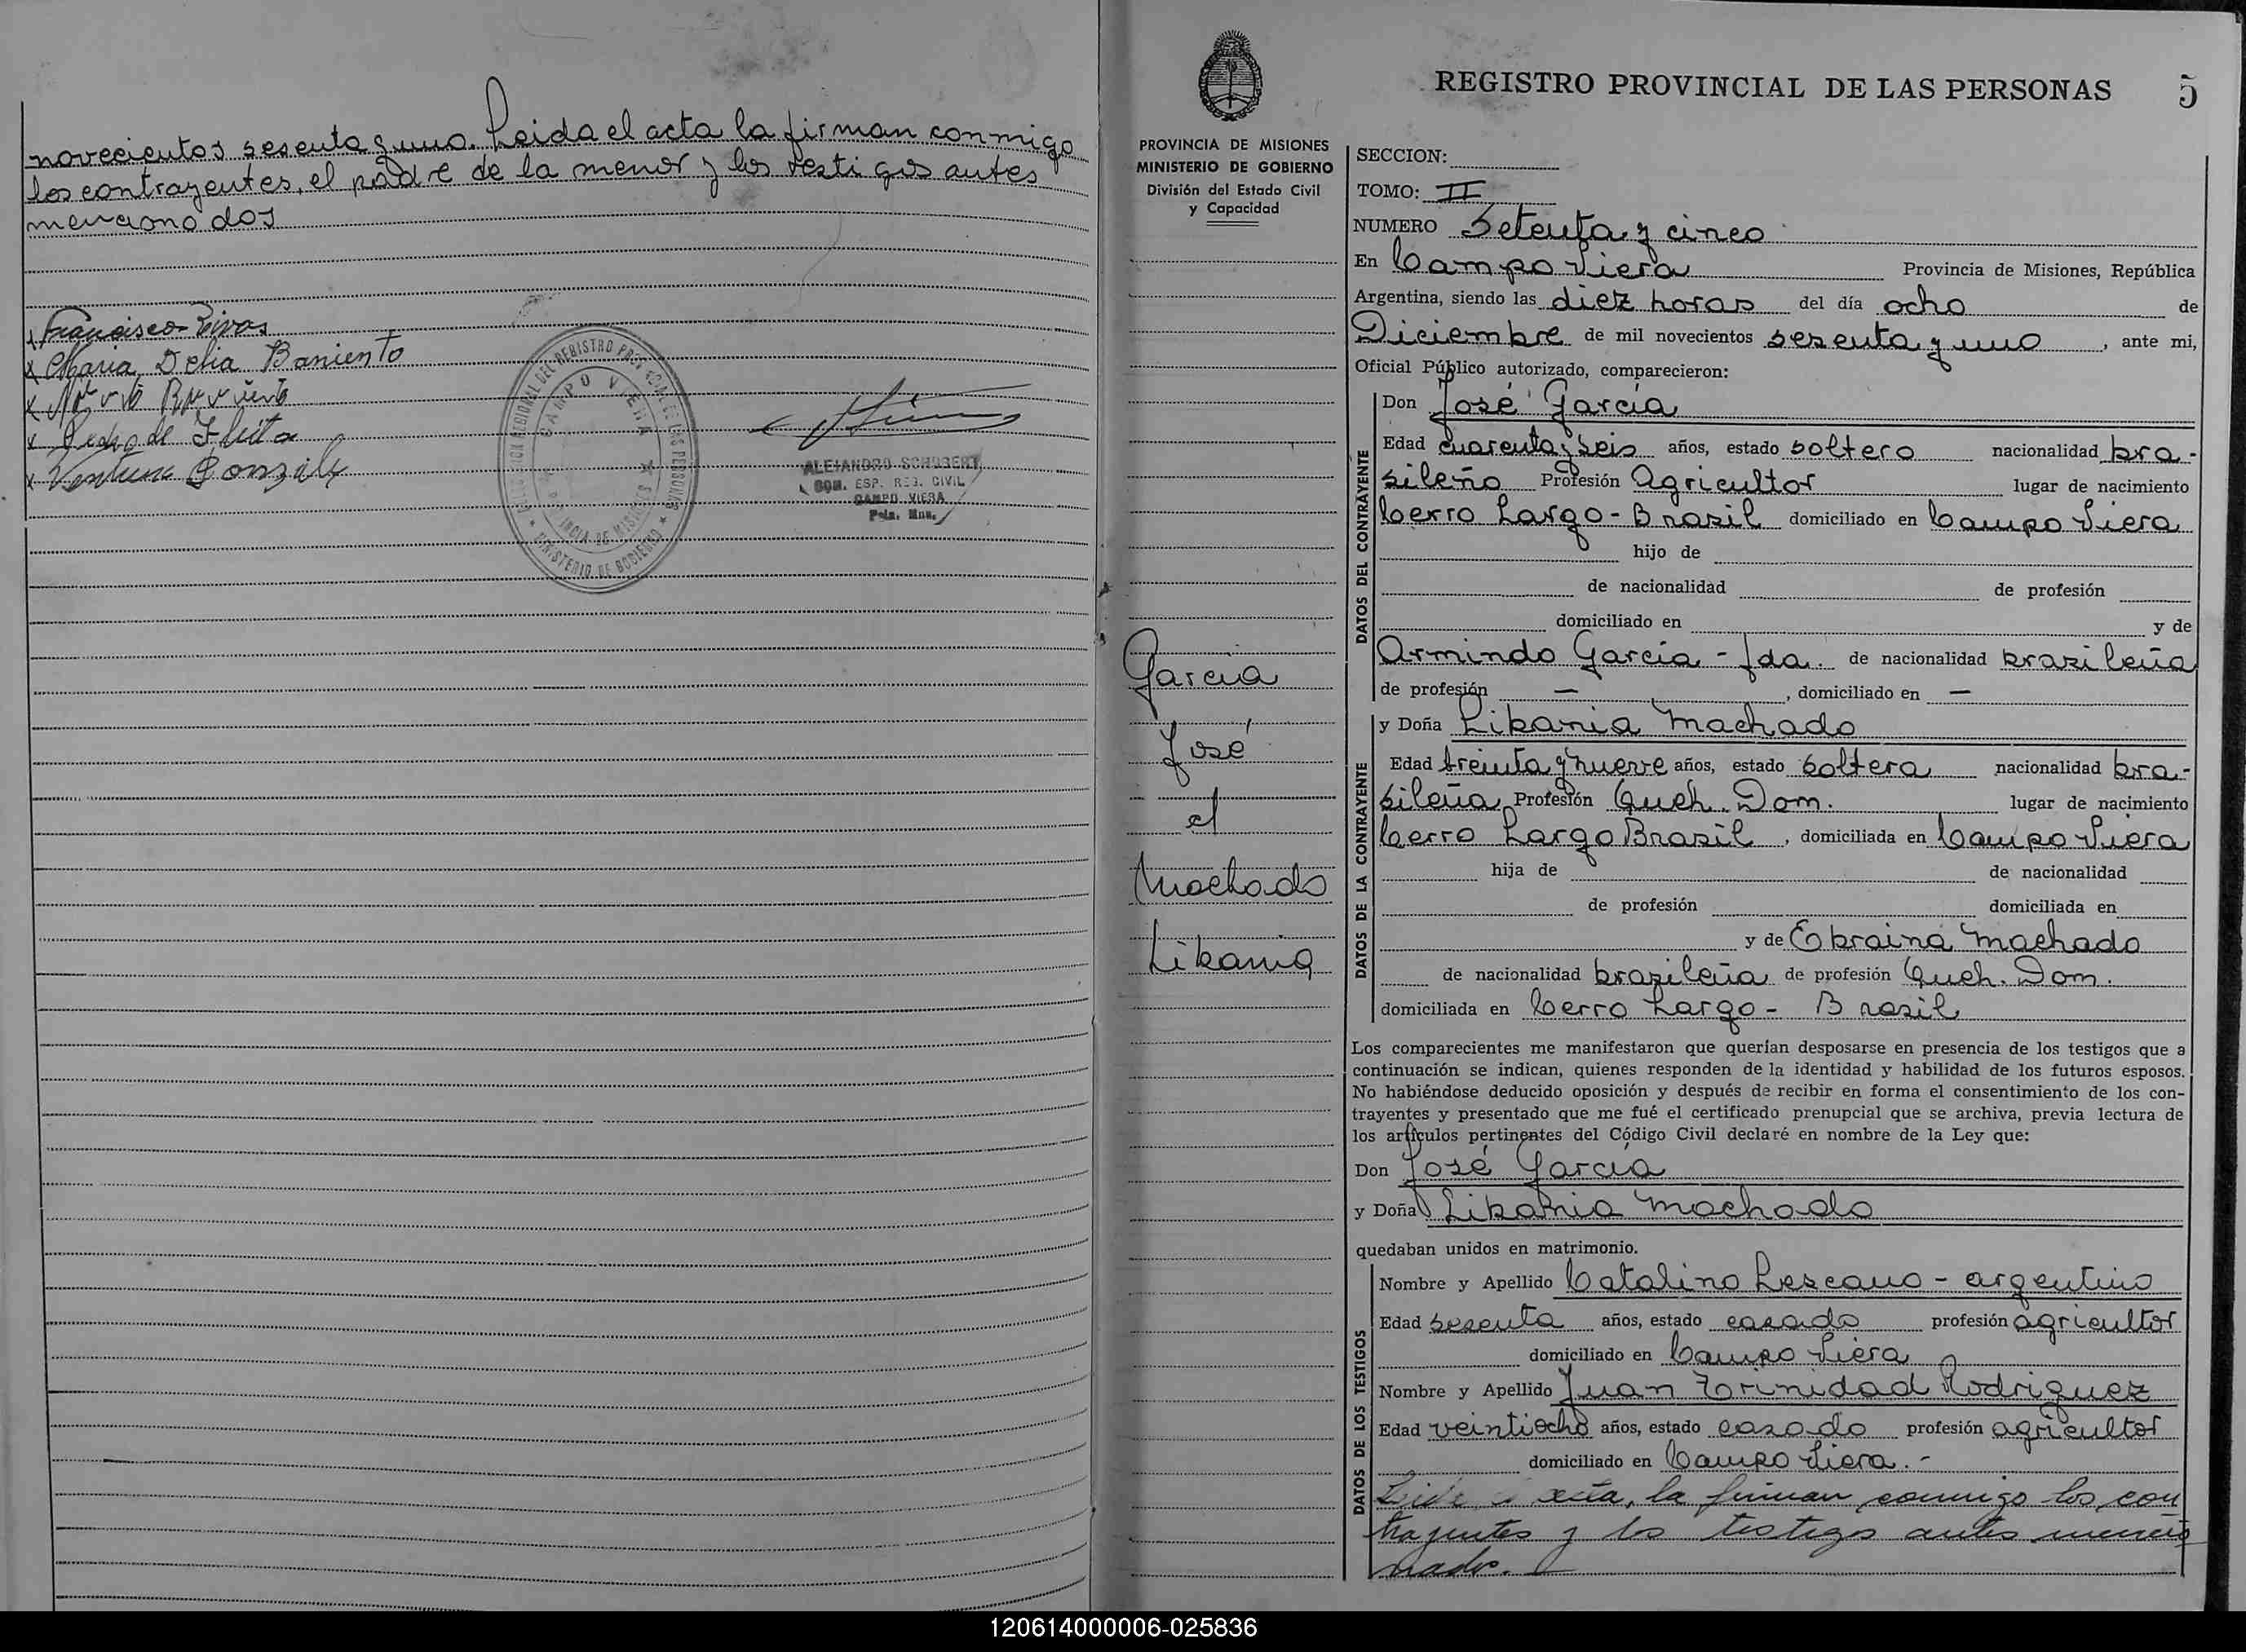 novecientos sesenta y uno. Leida el acta la firman conmigo
los contrayentes, el padre de la menor y los testigos antes
mencionados
x Francisco Vivas
x Maria Delia Baniento
x
x Pedro de Fleita
x Ventura Gonzalz
DELEGACION REGIONAL DEL REGISTRO PROVINCIAL DE LAS PERSONAS
CAMPO VIERA
PROVINCIA DE MISIONES
* MINISTERIO DE GOBIERNO *
ALEJANDRO SCHUBERT
COM. ESP. REG. CIVIL
CAMPO VIERA
Pcia. Mnes.
PROVINCIA DE MISIONES
MINISTERIO DE GOBIERNO
División del Estado Civil
y Capacidad
Garcia
José
el
Machado
Libania
REGISTRO PROVINCIAL DE LAS PERSONAS 5
SECCION:
TOMO: II
NUMERO Setenta y cinco
En Campo Viera Provincia de Misiones, República
Argentina, siendo las diez horas del día ocho de
Diciembre de mil novecientos sesenta y uno, ante mi,
Oficial Público autorizado, comparecieron:
DATOS DEL CONTRAYENTE
Don José García
Edad cuarenta y seis años, estado soltero nacionalidad bra-
sileño Profesión Agricultor lugar de nacimiento
Cerro Largo - Brasil domiciliado en Campo Viera
hijo de
de nacionalidad de profesión
domiciliado en y de
Armindo García - fda. de nacionalidad brasileña
de profesión —, domiciliado en —
DATOS DE LA CONTRAYENTE
y Doña Libania Machado
Edad treinta y nueve años, estado soltera nacionalidad bra-
sileña Profesión Queh. Dom. lugar de nacimiento
Cerro Largo Brasil, domiciliada en Campo Viera
hija de de nacionalidad
de profesión domiciliada en
y de Ebraina Machado
de nacionalidad brasileña de profesión Queh. Dom.
domiciliada en Cerro Largo - Brasil
Los comparecientes me manifestaron que querían desposarse en presencia de los testigos que a
continuación se indican, quienes responden de la identidad y habilidad de los futuros esposos.
No habiéndose deducido oposición y después de recibir en forma el consentimiento de los con-
trayentes y presentado que me fué el certificado prenupcial que se archiva, previa lectura de
los artículos pertinentes del Código Civil declaré en nombre de la Ley que:
Don José García
y Doña Libania Machado
quedaban unidos en matrimonio.
DATOS DE LOS TESTIGOS
Nombre y Apellido Catalino Lescano - argentino
Edad sesenta años, estado casado profesión agricultor
domiciliado en Campo Viera
Nombre y Apellido Juan Trinidad Rodriguez
Edad veintiocho años, estado casado profesión agricultor
domiciliado en Campo Viera.-
acta, la firman conmigo los con
trayentes y los testigos antes mencio
nados.
120614000006-025836